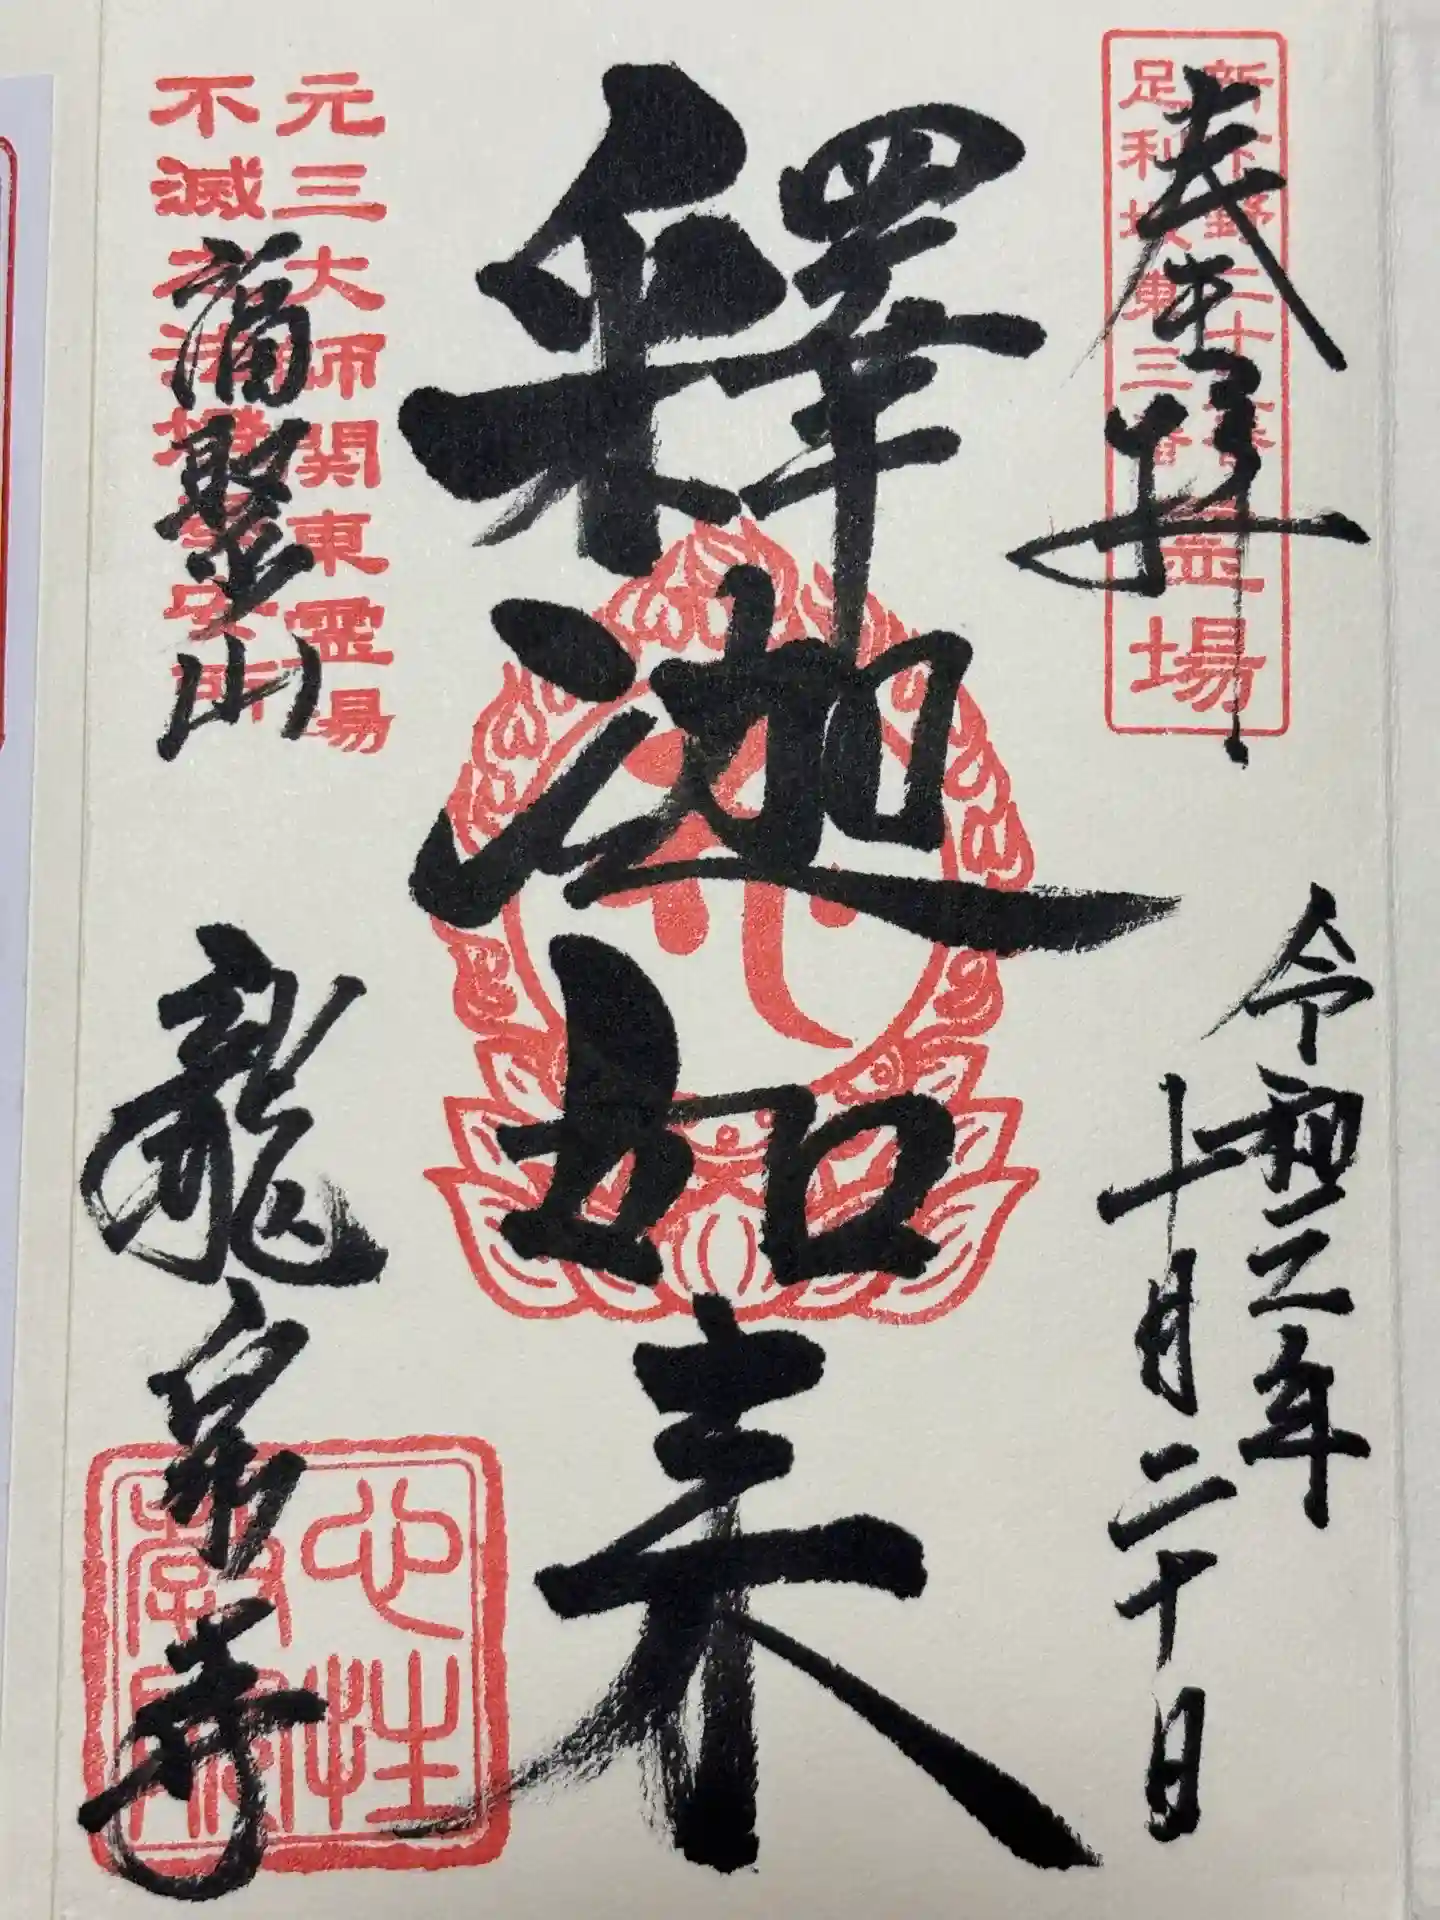 奉拝
新下野
足利坂東三番
霊場
令和二年
十月二十日
釋迦如来
元三大師関東霊場
不滅之法燈奉安所
福聚山
龍泉寺
心性